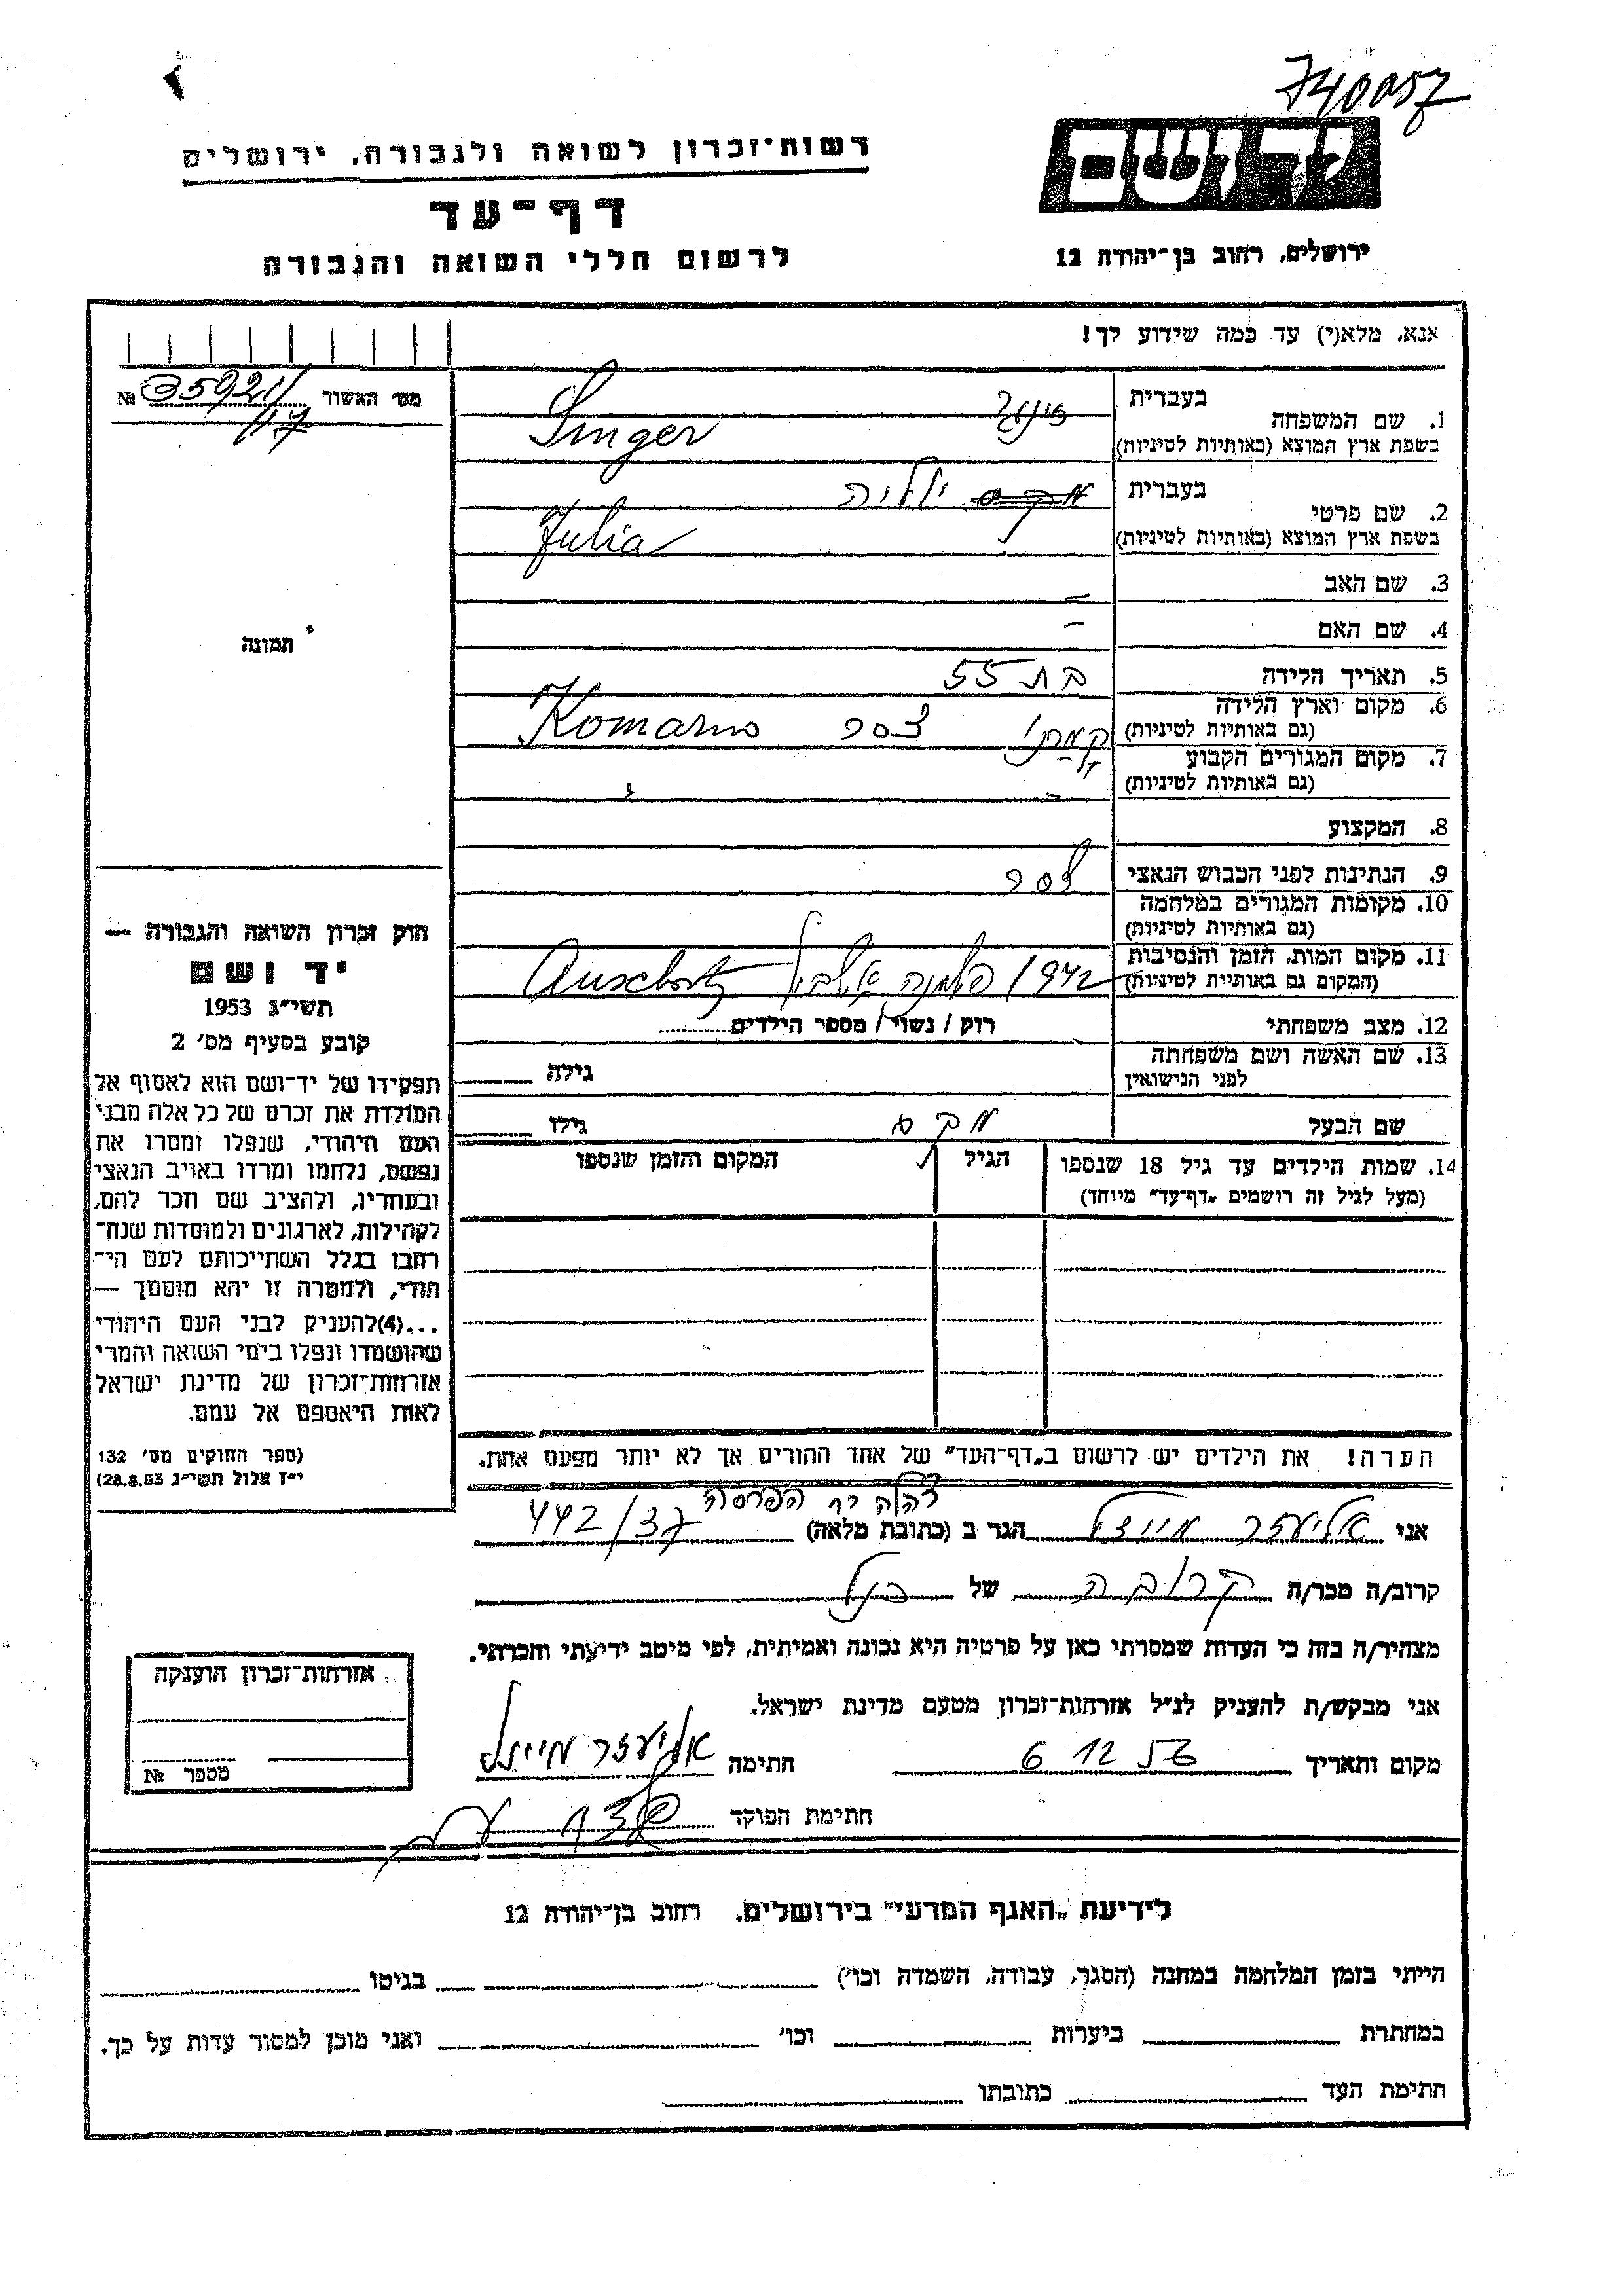 740057
יד ושם
ירושלים, רחוב בן־יהודה 12
רשות־זכרון לשואה ולגבורה, ירושלים
דף־עד
לרשום חללי השואה והגבורה
אנא, מלא(י) עד כמה שידוע לך!
מס׳ האשור № 35921/
117
1. שם המשפחה
בעברית זינגר
בשפת ארץ המוצא (באותיות לטיניות) Singer
2. שם פרטי
בעברית יוליה
בשפת ארץ המוצא (באותיות לטיניות) Julia
3. שם האב –
4. שם האם –
5. תאריך הלידה בת 55
6. מקום וארץ הלידה
(גם באותיות לטיניות) צ׳כס Komarno
7. מקום המגורים הקבוע
(גם באותיות לטיניות) –
8. המקצוע
9. הנתינות לפני הכבוש הנאצי
10. מקומות המגורים במלחמה
(גם באותיות לטיניות)
11. מקום המות, הזמן והנסיבות
(המקום גם באותיית לטיניות) 1942
12. מצב משפחתי רוק / נשוי / מספר הילדים
13. שם האשה ושם משפחתה
לפני הנישואין גילה
שם הבעל מקס גילו
14. שמות הילדים עד גיל 18 שנספו הגיל המקום והזמן שנספו
(מעל לגיל זה רושמים „דף־עד״ מיוחד)
הערה! את הילדים יש לרשום ב„דף־העד״ של אחד ההורים אך לא יותר מפעם אחת.
תמונה
חוק זכרון השואה והגבורה —
יד ושם
תשי״ג 1953
קובע בסעיף מס׳ 2
תפקידו של יד־ושם הוא לאסוף אל
המולדת את זכרם של כל אלה מבני
העם היהודי, שנפלו ומסרו את
נפשם, נלחמו ומרדו באויב הנאצי
ובעוזריו, ולהציב שם וזכר להם,
לקהילות, לארגונים ולמוסדות שנח־
רבו בגלל השתייכותם לעם הי־
הודי, ולמטרה זו יהא מוסמך —
...(4)להעניק לבני העם היהודי
שהושמדו ונפלו בימי השואה והמרי
אזרחות־זכרון של מדינת ישראל
לאות היאספם אל עמם.
(ספר החוקים מס׳ 132
י״ז אלול תשי״ג 28.8.53)
אני אליעזר הגר ב (כתובת מלאה) 442/37
קרוב/ה מכר/ה קרובה של
מצהיר/ה בזה כי העדות שמסרתי כאן על פרטיה היא נכונה ואמיתית, לפי מיטב ידיעתי והכרתי.
אני מבקש/ת להעניק לנ״ל אזרחות־זכרון מטעם מדינת ישראל.
מקום ותאריך 6 12 חתימה אליעזר
חתימת הפוקד
אזרחות־זכרון הוענקה
מספר №
לידיעת „האגף המדעי״ בירושלים, רחוב בן־יהודה 12
הייתי בזמן המלחמה במחנה (הסגר, עבודה, השמדה וכו׳) בגיטו
במחתרת ביערות וכו׳ ואני מוכן למסור עדות על כך.
חתימת העד כתובתו